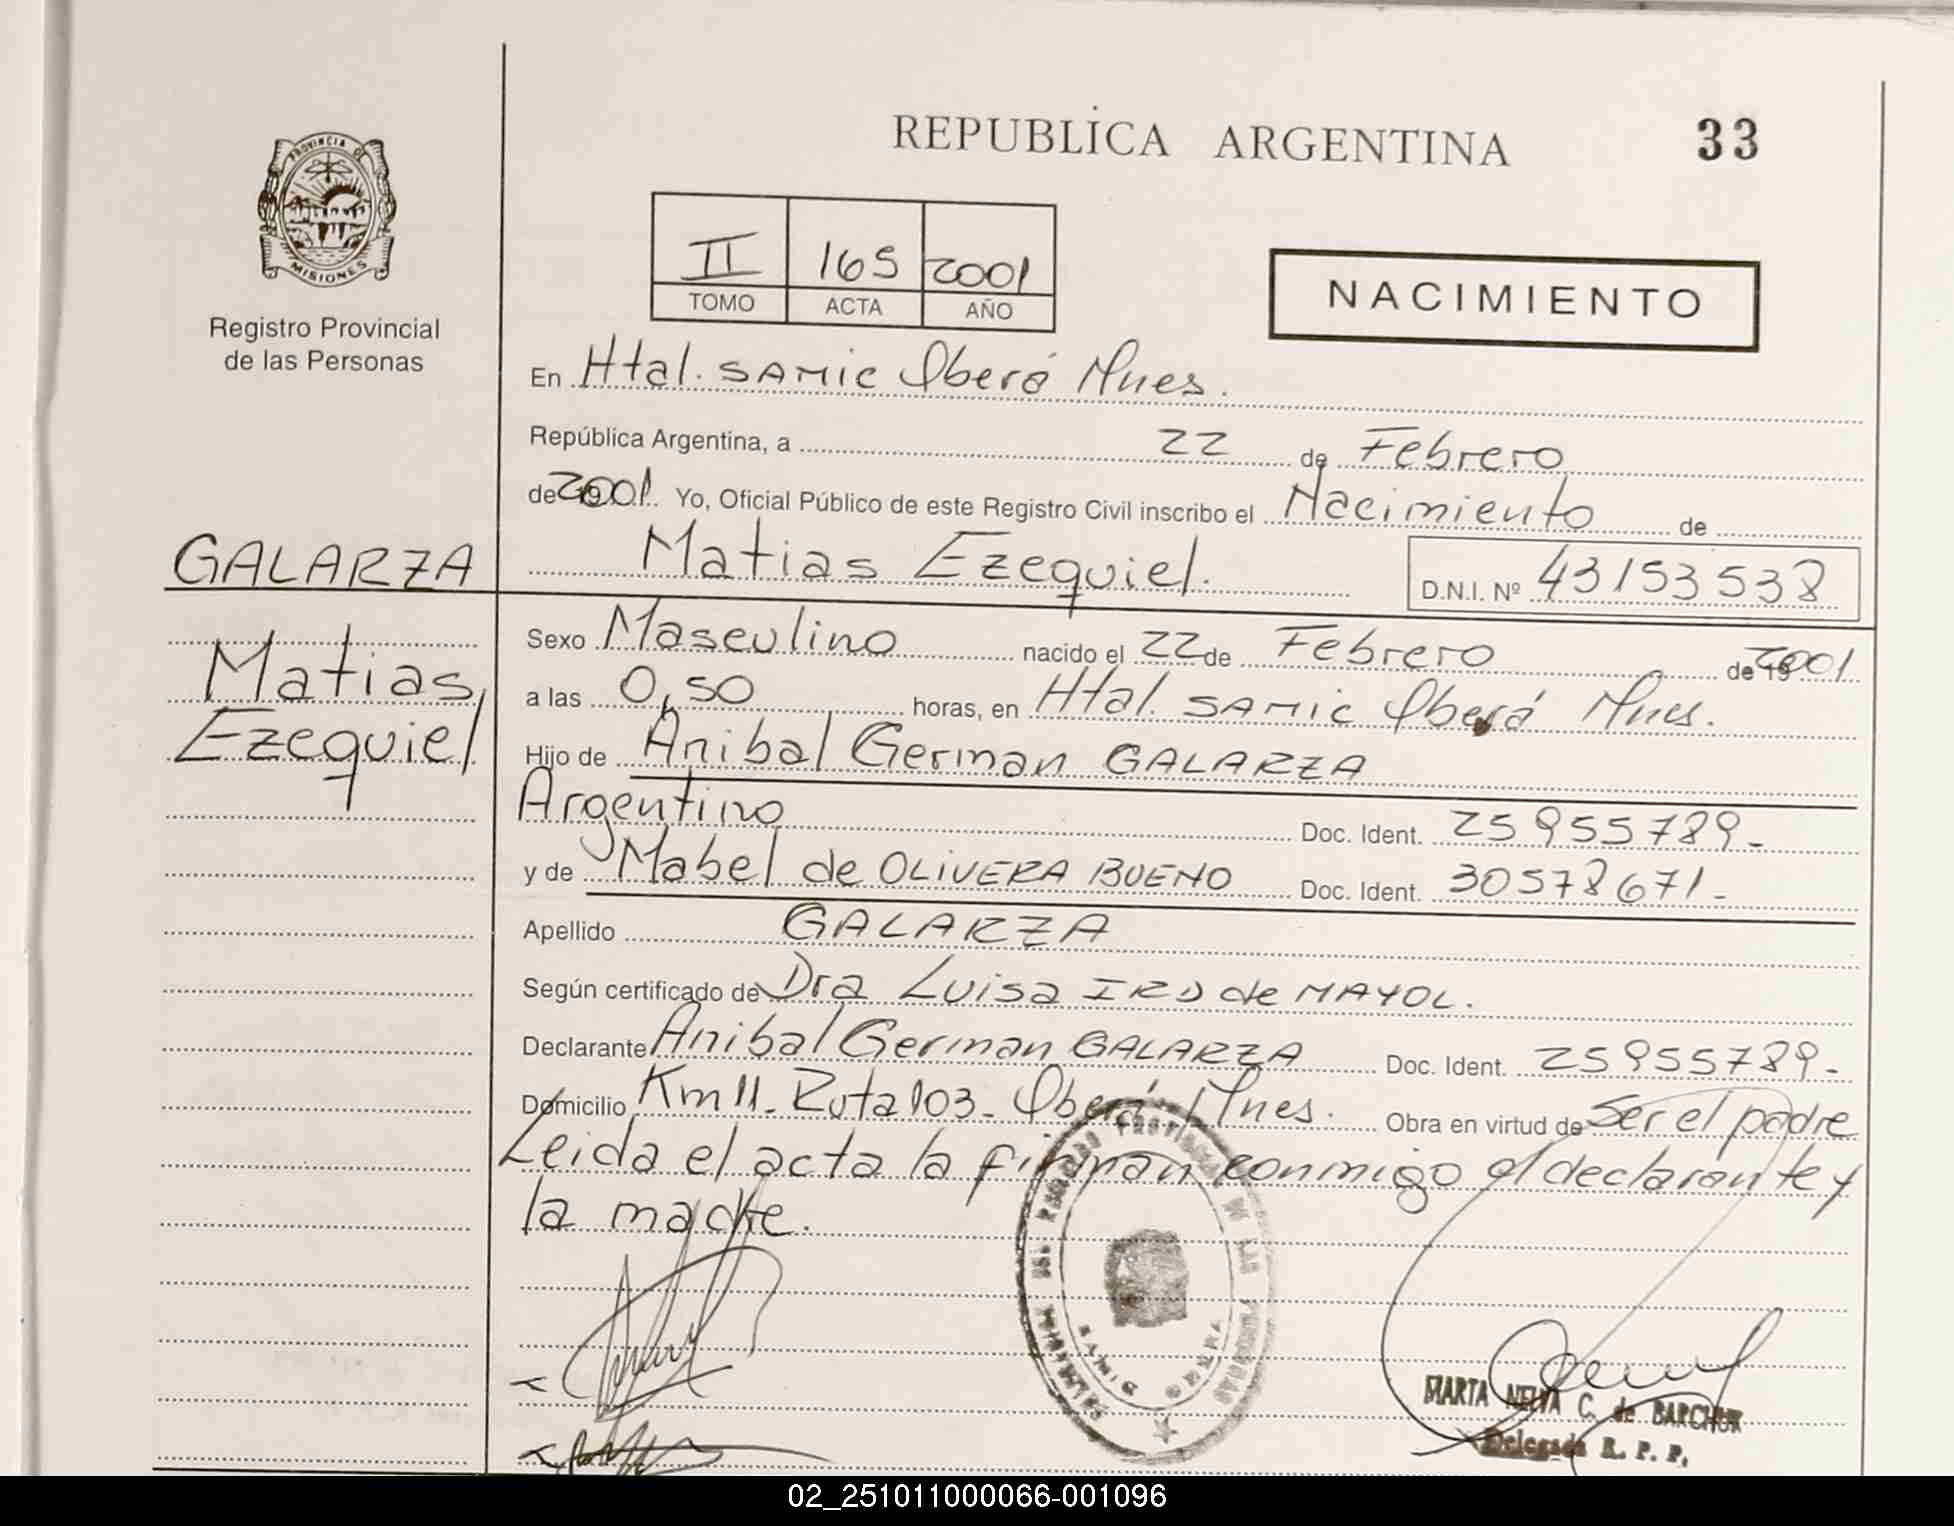 REPUBLICA ARGENTINA
33
PROVINCIA DE
MISIONES
Registro Provincial
de las Personas
II 165 2001
TOMO ACTA AÑO
NACIMIENTO
En Htal. SAMIC Oberá Mnes.
República Argentina, a 22 de Febrero
de 2001. Yo, Oficial Público de este Registro Civil inscribo el Nacimiento de
GALARZA
Matias Ezequiel. D.N.I. Nº 43153538
Matias
Ezequiel
Sexo Masculino nacido el 22 de Febrero de 2001
a las 0,50 horas, en Htal. SAMIC Oberá Mnes.
Hijo de Anibal German GALARZA
Argentino Doc. Ident. 25955789-
y de Mabel de OLIVERA BUENO Doc. Ident. 30578671-
Apellido GALARZA
Según certificado de Dra Luisa de MAYOL.
Declarante Anibal German GALARZA Doc. Ident. 25955789-
Domicilio Km 11- Ruta 103- Oberá Mnes. Obra en virtud de ser el padre
Leida el acta la firman conmigo el declarante y
la madre.
MARTA NELVA C. de BARCHUK
Delegada R. P. P.
02_251011000066-001096